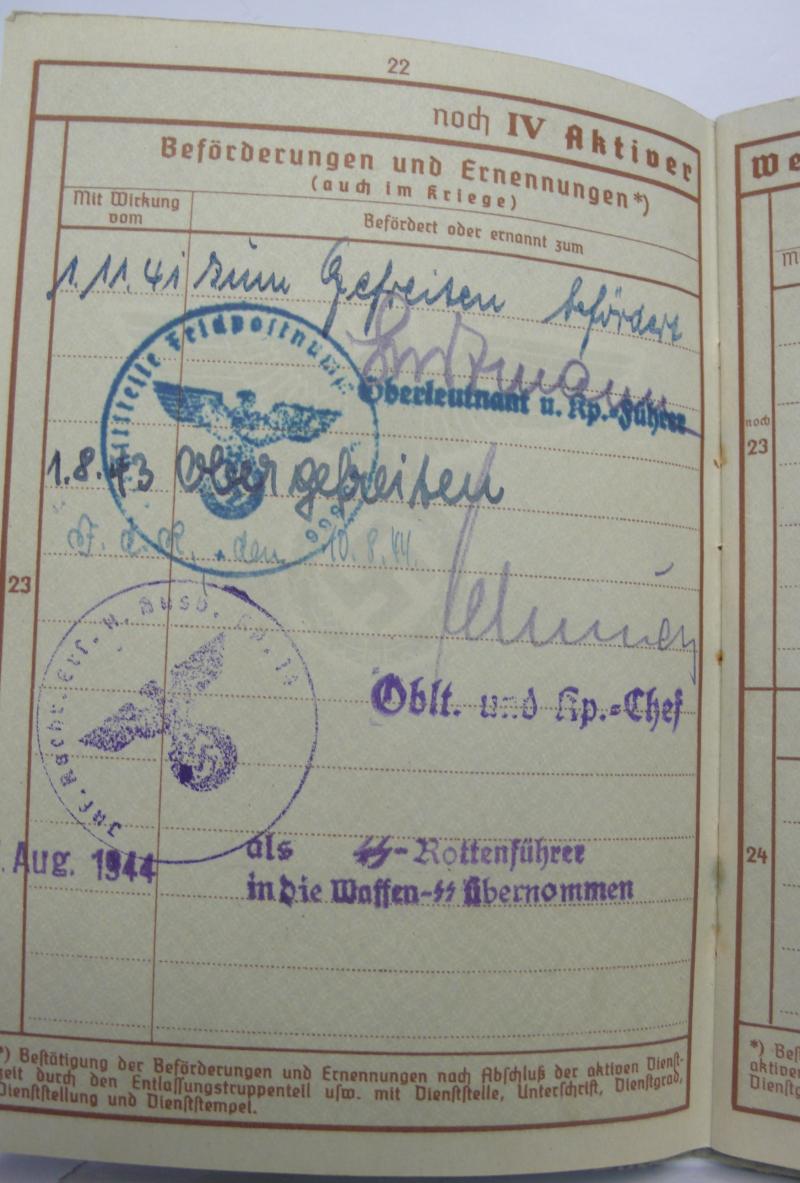 22
noch IV Aktiver
Beförderungen und Ernennungen*)
(auch im Kriege)
Mit Wirkung
vom
Befördert oder ernannt zum
1.11.41 zum Gefreiten befördert
Feldpostnum
Oberleutnant u. Kp.-Führer
1.8.43 Obergefreiten
den 10.8.44.
23
Oblt. und Kp.-Chef
Aug. 1944
als ᛋᛋ-Rottenführer
in die Waffen-ᛋᛋ übernommen
*) Bestätigung der Beförderungen und Ernennungen nach Abschluß der aktiven Dienst-
zeit durch den Entlassungstruppenteil usw. mit Dienststelle, Unterschrift, Dienstgrad,
Dienststellung und Dienststempel.
We
noch
23
24
*) Bes
aktiven
Dienstg